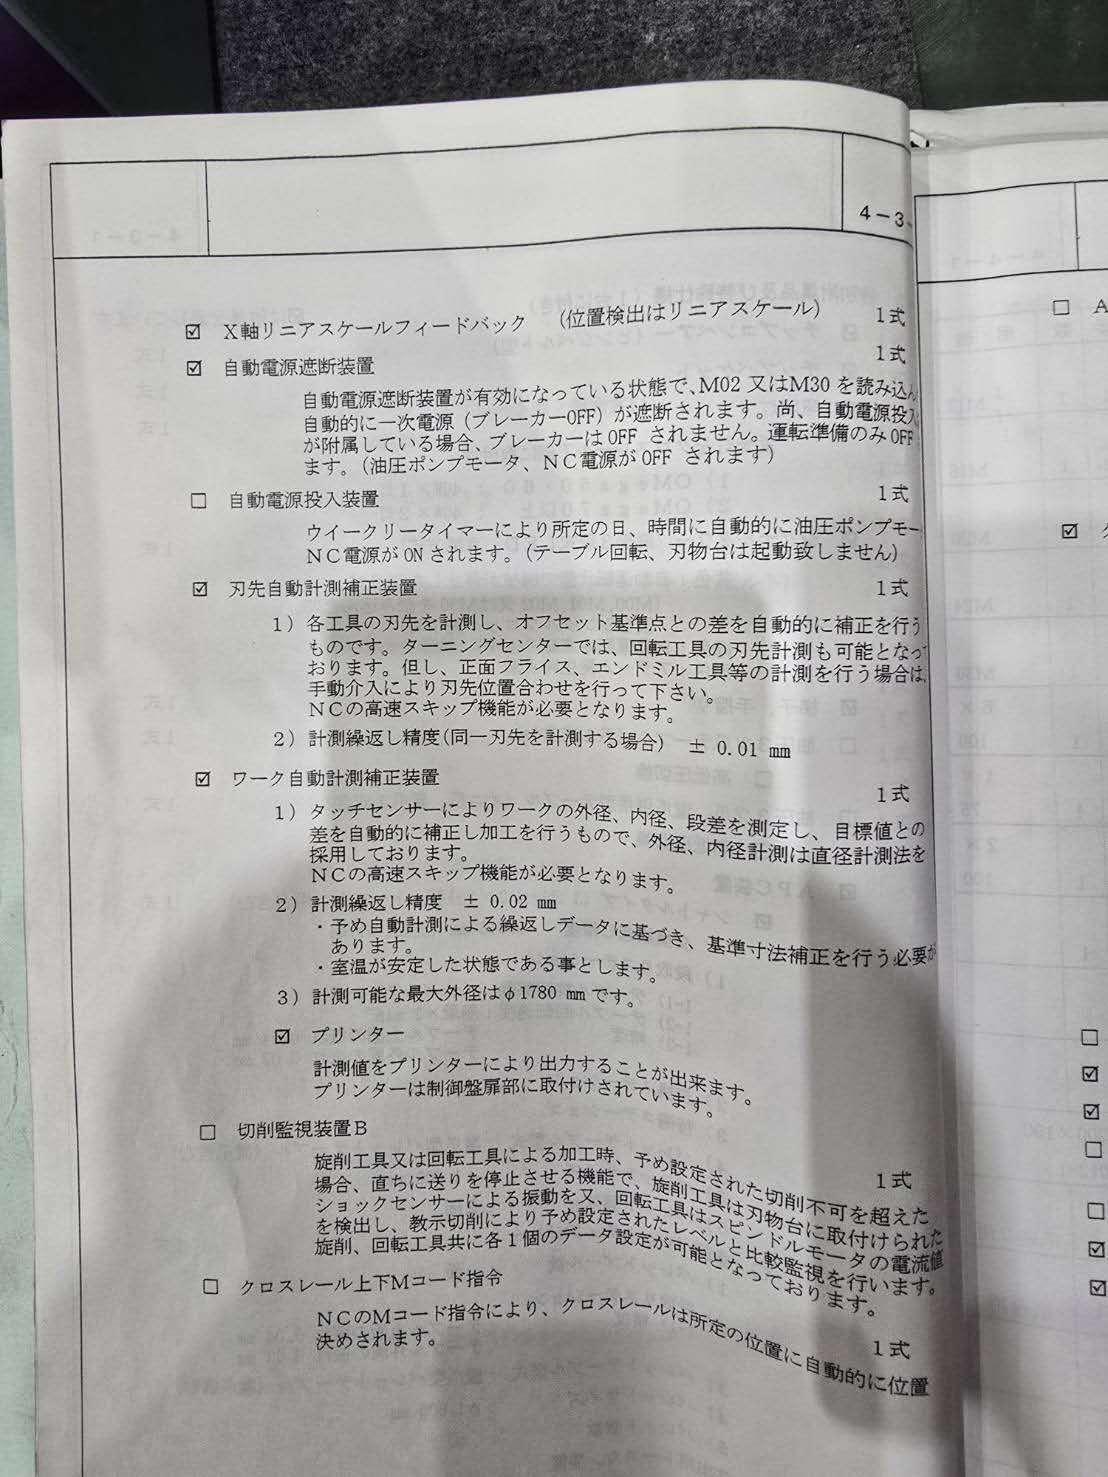 4－3－
☑ X軸リニアスケールフィードバック （位置検出はリニアスケール） 1式
☑ 自動電源遮断装置 1式
自動電源遮断装置が有効になっている状態で、M02 又はM30 を読み込ん
自動的に一次電源（ブレーカーOFF）が遮断されます。尚、自動電源投入
が附属している場合、ブレーカーは OFF されません。運転準備のみ OFF
ます。（油圧ポンプモータ、NC電源が OFF されます）
☐ 自動電源投入装置 1式
ウイークリータイマーにより所定の日、時間に自動的に油圧ポンプモー
NC電源が ON されます。（テーブル回転、刃物台は起動致しません）
☑ 刃先自動計測補正装置 1式
1）各工具の刃先を計測し、オフセット基準点との差を自動的に補正を行う
ものです。ターニングセンターでは、回転工具の刃先計測も可能となって
おります。但し、正面フライス、エンドミル工具等の計測を行う場合は、
手動介入により刃先位置合わせを行って下さい。
NCの高速スキップ機能が必要となります。
2）計測繰返し精度（同一刃先を計測する場合） ± 0.01 mm
☑ ワーク自動計測補正装置 1式
1）タッチセンサーによりワークの外径、内径、段差を測定し、目標値との
差を自動的に補正し加工を行うもので、外径、内径計測は直径計測法を
採用しております。
NCの高速スキップ機能が必要となります。
2）計測繰返し精度 ± 0.02 mm
・予め自動計測による繰返しデータに基づき、基準寸法補正を行う必要が
あります。
・室温が安定した状態である事とします。
3）計測可能な最大外径はφ1780 mm です。
☑ プリンター
計測値をプリンターにより出力することが出来ます。
プリンターは制御盤扉部に取付けされています。
☐ 切削監視装置B 1式
旋削工具又は回転工具による加工時、予め設定された切削不可を超えた
場合、直ちに送りを停止させる機能で、旋削工具は刃物台に取付けられた
ショックセンサーによる振動を又、回転工具はスピンドルモータの電流値
を検出し、教示切削により予め設定されたレベルと比較監視を行います。
旋削、回転工具共に各1個のデータ設定が可能となっております。
☐ クロスレール上下Mコード指令 1式
NCのMコード指令により、クロスレールは所定の位置に自動的に位置
決めされます。
☐ A
☑
☐
☑
☑
☐
☐
☑
☑